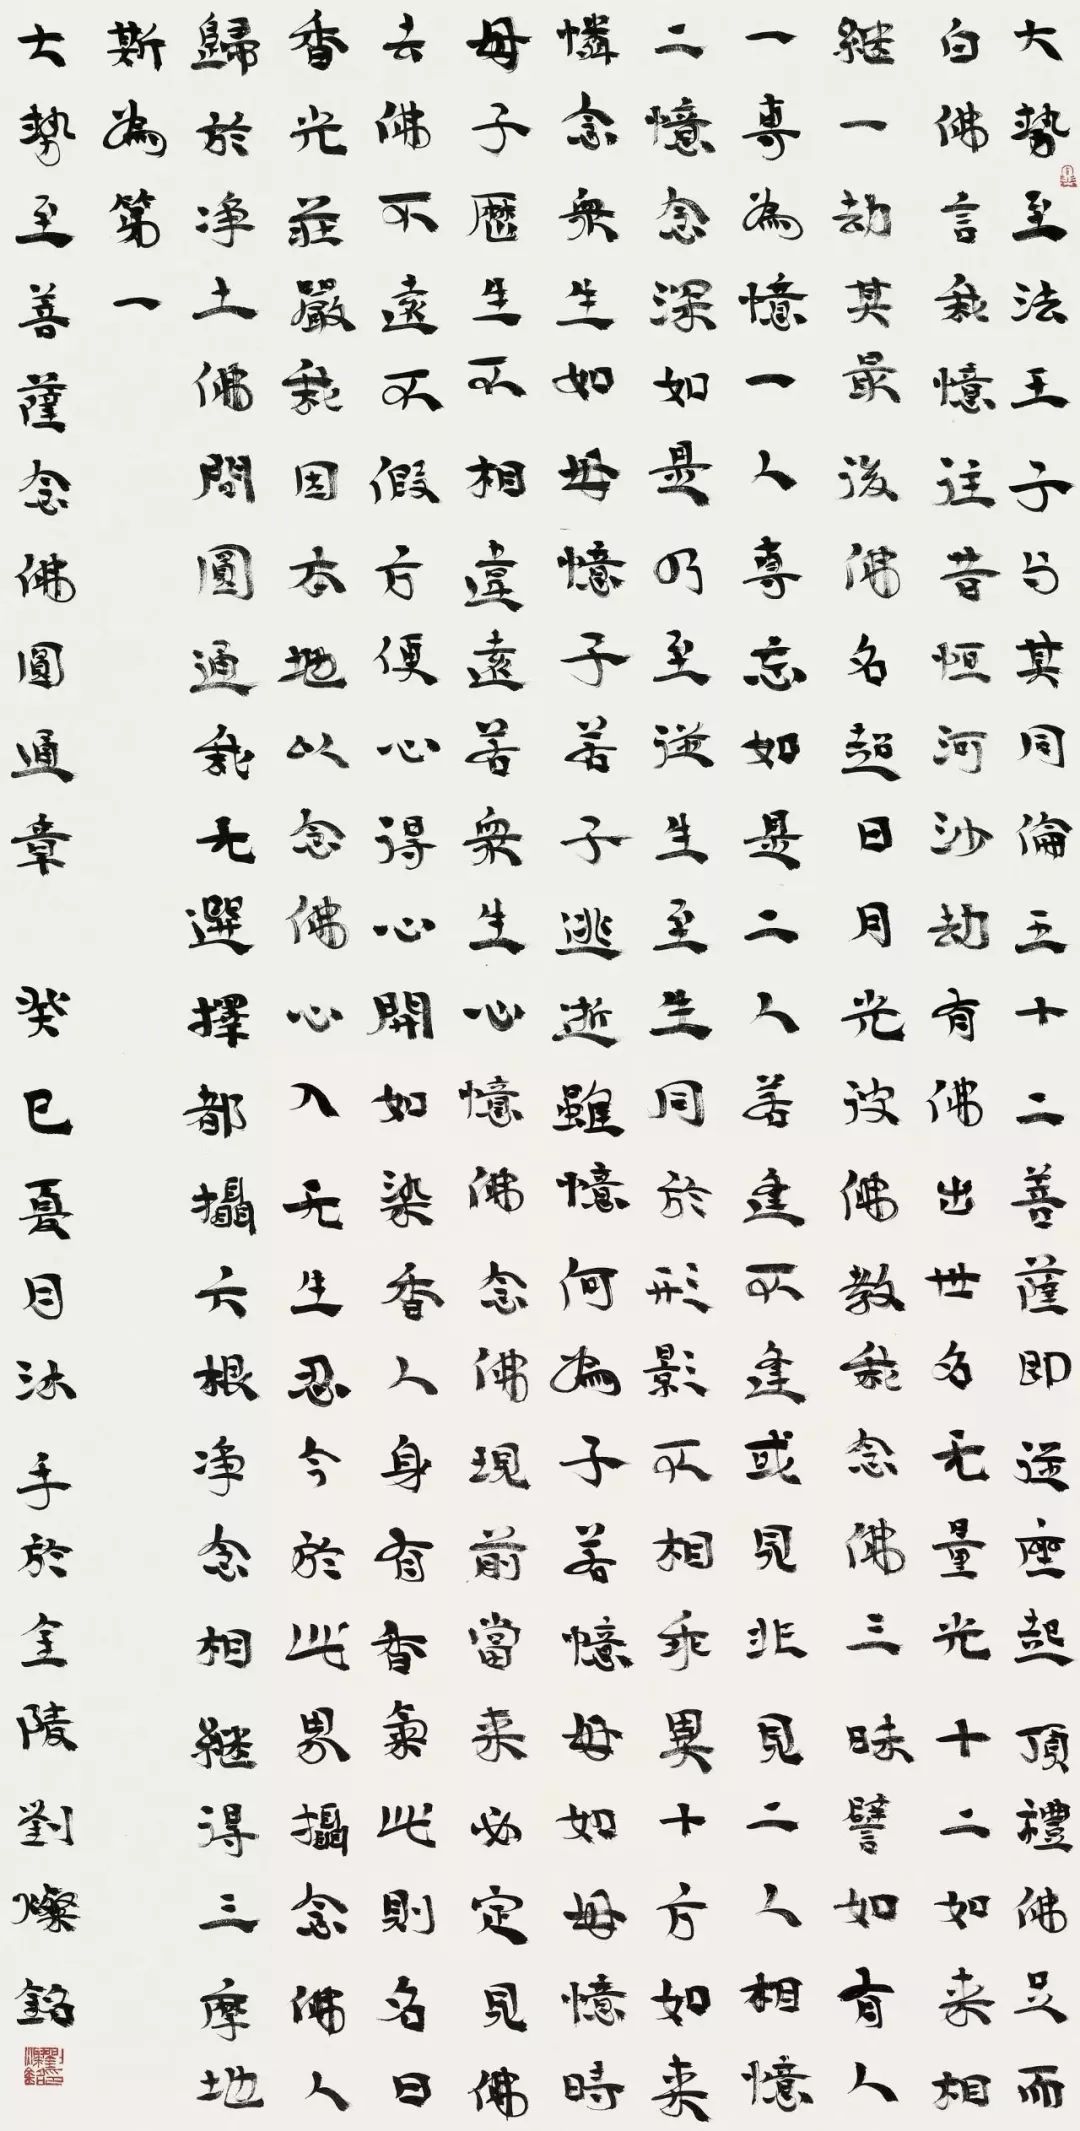 大勢至法王子与其同倫五十二菩薩即從座起頂禮佛足而
白佛言我憶往昔恒河沙劫有佛出世名无量光十二如来相
継一劫其最後佛名超日月光彼佛教我念佛三昧譬如有人
一專為憶一人專忘如是二人若逢不逢或見非見二人相憶
二憶念深如是乃至從生至生同於形影不相乖異十方如来
憐念衆生如母憶子若子逃逝雖憶何為子若憶母如母憶時
母子歷生不相違遠若衆生心憶佛念佛現前當来必定見佛
去佛不遠不假方便心得心開如染香人身有香氣此則名曰
香光莊嚴我因本地以念佛心入无生忍今於此界攝念佛人
歸於净土佛問圓通我无選擇都攝六根净念相継得三摩地
斯為第一
大勢至菩薩念佛圓通章 癸巳夏月沐手於金陵劉燦銘